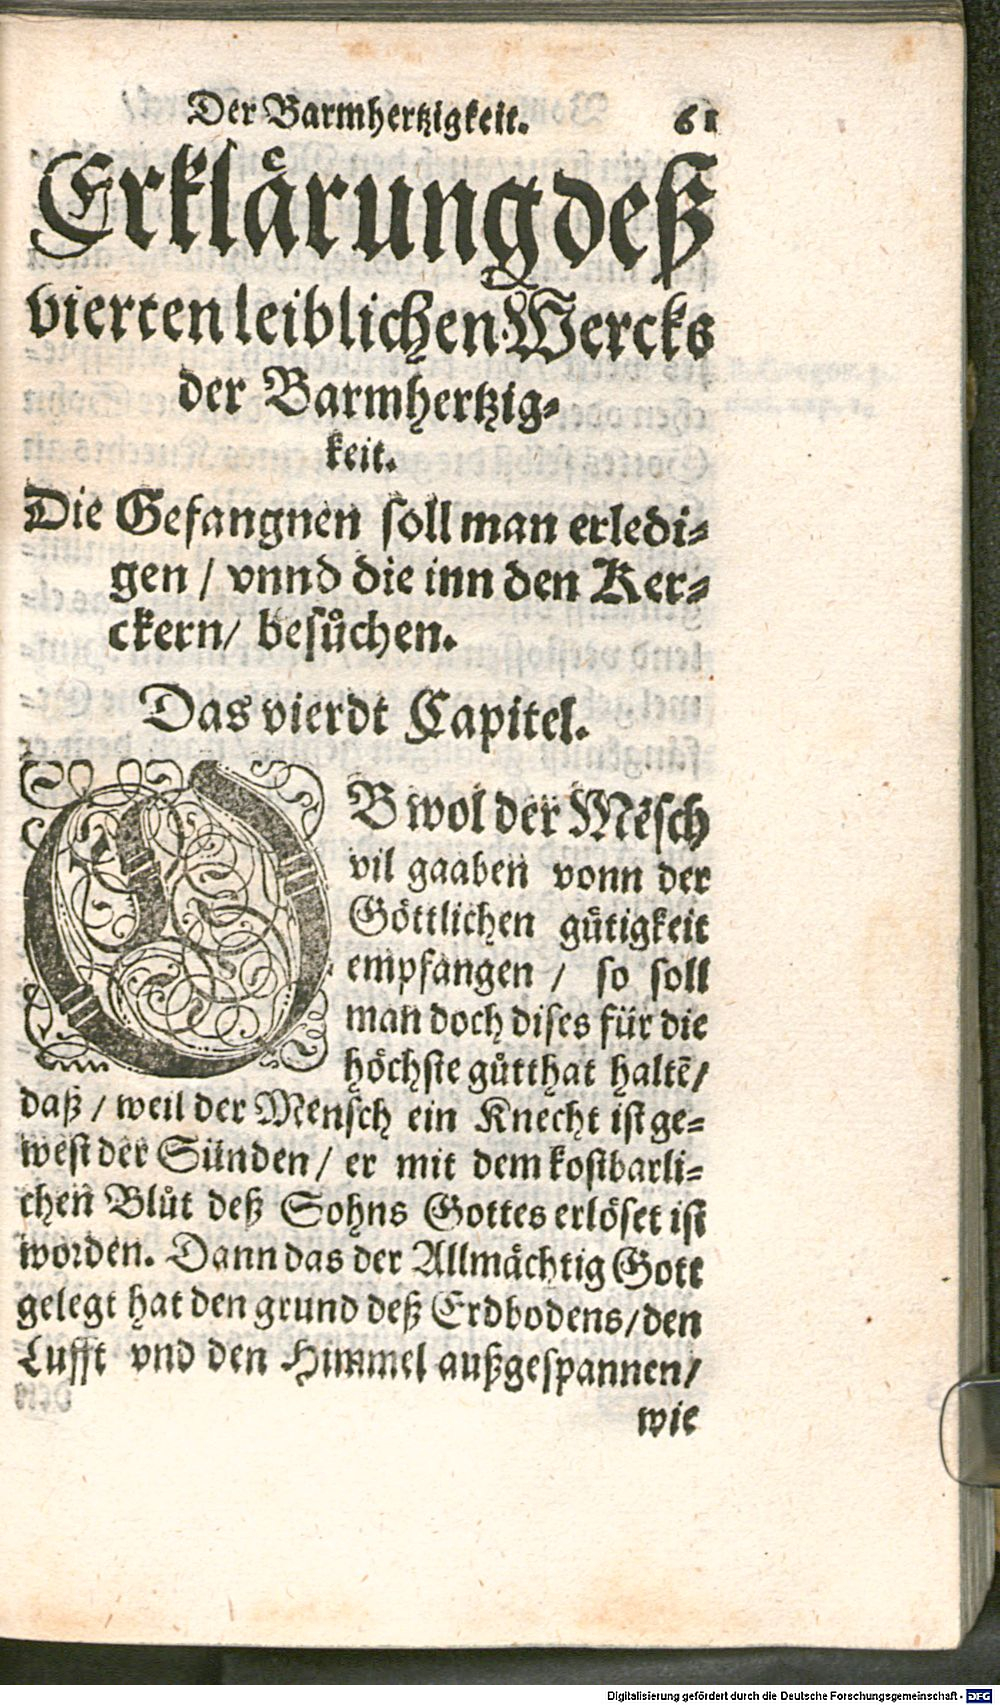 Der Barmhertzigkeit. 61
Erklaͤrung deß
vierten leiblichen Wercks
der Barmhertzig⸗
keit.
Die Gefangnen soll man erledi⸗
gen / vnnd die inn den Ker⸗
ckern / besuͦchen.
Das vierdt Capitel.
OB wol der Mẽsch
vil gaaben vonn der
Goͤttlichen guͤtigkeit
empfangen / so soll
man doch dises für die
hoͤchste guͦtthat haltẽ /
daß / weil der Mensch ein Knecht ist ge⸗
west der Sünden / er mit dem kostbarli⸗
chen Bluͦt deß Sohns Gottes erloͤset ist
worden. Dann das der Allmaͤchtig Gott
gelegt hat den grund deß Erdbodens / den
Lufft vnd den Himmel außgespannen /
wie
Digitalisierung gefördert durch die Deutsche Forschungsgemeinschaft - DFG